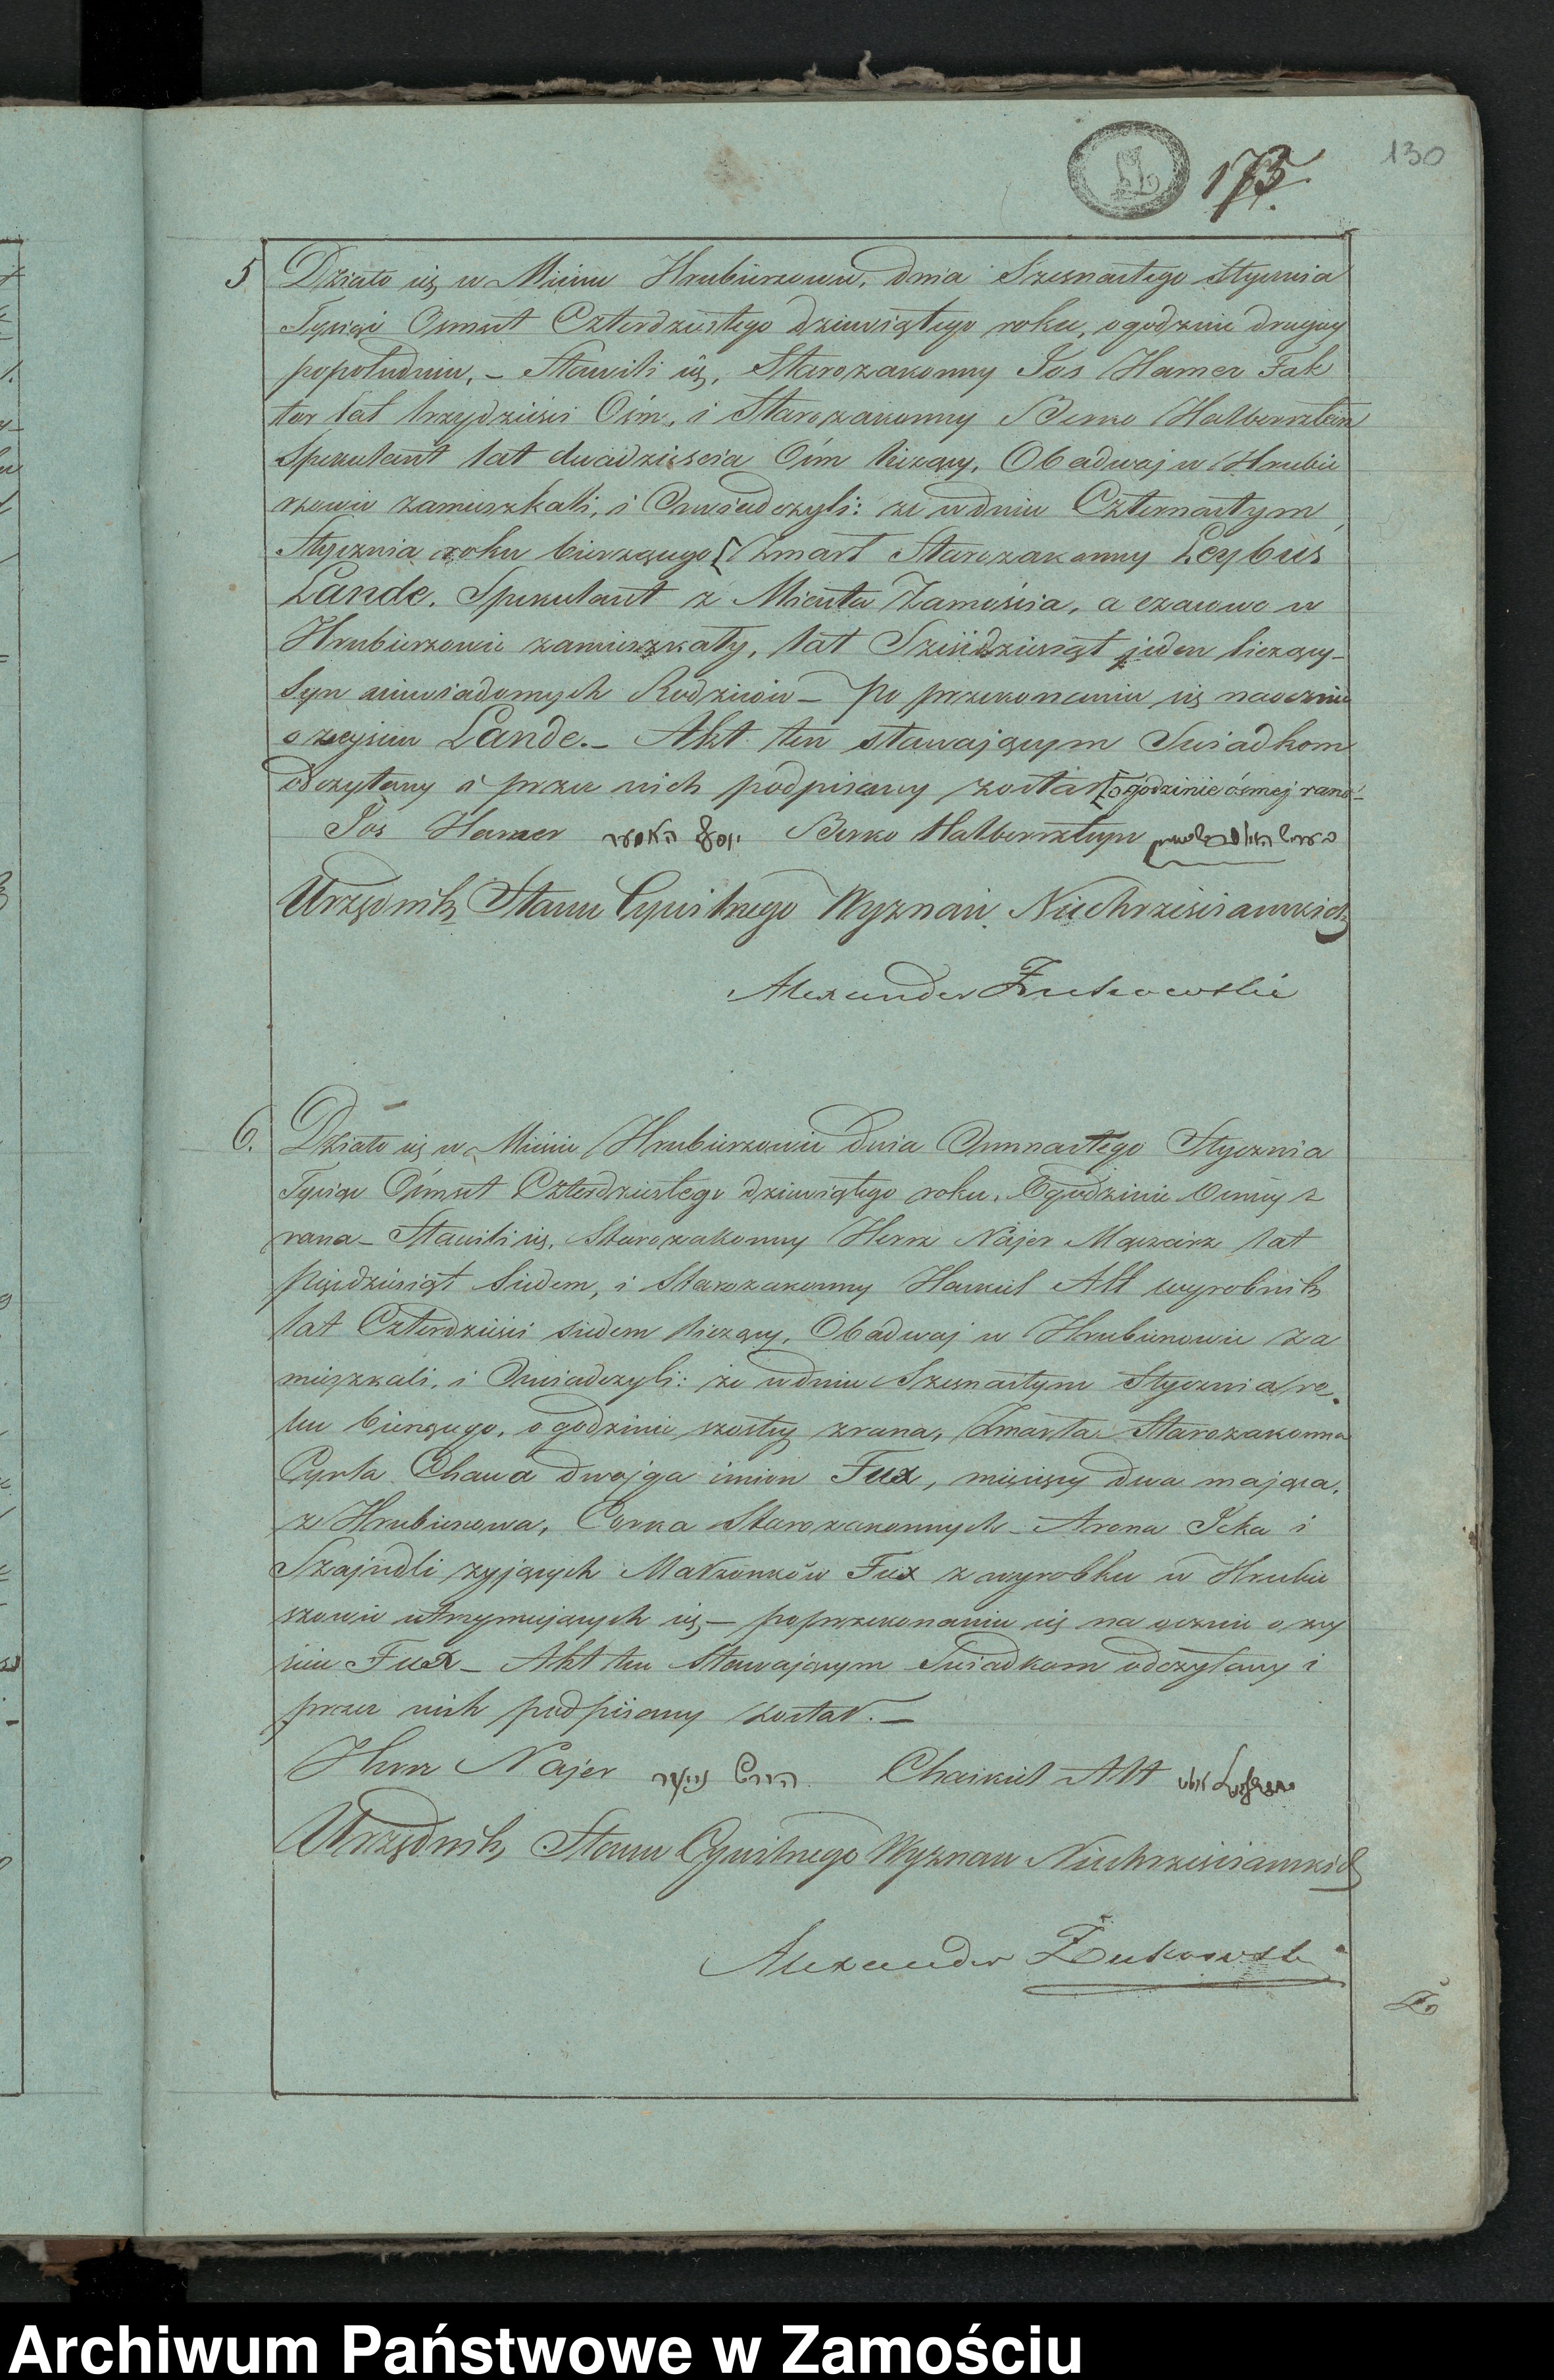 130
173.
5 Działo się w Mieście Hrubieszowie, dnia Szesnastego Stycznia
Tysiąc Osmset Czterdziestego dziewiątego roku, o godzinie drugiej
popołudniu, – Stawili się, Starozakonny Jos Hamer Fak
tor lat trzydzieści Ośm, i Starozakonny Berko Halbersztein
Spekulant lat dwadzieścia Ośm liczący, Obadwaj w Hrubie
szowie zamieszkali, i Oświadczyli: że w dniu Czternastym
Stycznia roku bieżącego [Zmarł Starozakonny Leybuś
Lande, Spekulant z Miasta Zamościa, a czasowo w
Hrubieszowie zamieszkały, lat Sześćdziesiąt jeden liczący –
Syn niewiadomych Rodziców – Po przekonaniu się naocznie
o zejściu Lande. – Akt ten stawającym Świadkom
odczytany i przez nich podpisany został [o godzinie ósmej rano –
Jos Hamer יוסף האמער Berko Halbersztyn
Urzędnik Stanu Cywilnego Wyznań Niechrześciańskich
Alexander Żukowski
6. Działo się w Mieście Hrubieszowie dnia Osmnastego Stycznia
Tysiąc Ośmset Czterdziestego dziewiątego roku, O godzinie Osmej z
rana – Stawili się, Starozakonny Hersz Najer Mączarz lat
Pięćdziesiąt Siedem, i Starozakonny Haskiel Alt wyrobnik
lat Czterdzieści siedem liczący, Obadwaj w Hrubieszowie za
mieszkali, i Oświadczyli: że w dniu Szesnastym Stycznia ro
ku bieżącego, o godzinie szostej zrana, Zmarła Starozakonna
Cyrla Chawa dwojga imion Fux, miesięcy dwa mająca,
z Hrubieszowa, Corka Starozakonnych Arona Icka i
Szajndli żyjących Małżonków Fux z wyrobku w Hrubie
szowie utrzymujących się – po przekonaniu się na ocznie o zej
ściu Fux – Akt ten Stawającym Świadkom odczytany i
przez nich podpisany został. –
Hersz Najer הירש נייער Chaskiel Alt
Urzędnik Stanu Cywilnego Wyznań Niechrześciańskich
Alexander Żukowski
Archiwum Państwowe w Zamościu